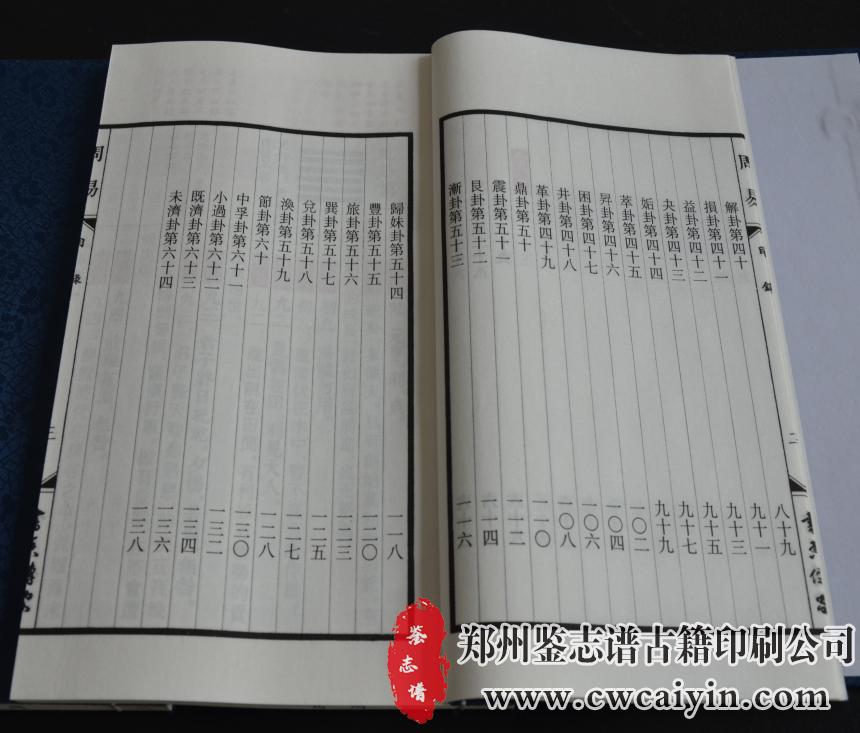 周易
目錄
二
解卦第四十 八十九
損卦第四十一 九十一
益卦第四十二 九十三
夬卦第四十三 九十五
姤卦第四十四 九十七
萃卦第四十五 九十九
昇卦第四十六 一〇二
困卦第四十七 一〇四
井卦第四十八 一〇六
革卦第四十九 一〇八
鼎卦第五十 一一〇
震卦第五十一 一一二
艮卦第五十二 一一四
漸卦第五十三 一一六
歸妹卦第五十四 一一八
豐卦第五十五 一二〇
旅卦第五十六 一二三
巽卦第五十七 一二五
兌卦第五十八 一二七
渙卦第五十九 一二八
節卦第六十 一三〇
中孚卦第六十一 一三二
小過卦第六十二 一三四
既濟卦第六十三 一三六
未濟卦第六十四 一三八
周易
目錄
三
鉴志谱
郑州鉴志谱古籍印刷公司
www.cwcaiyin.com